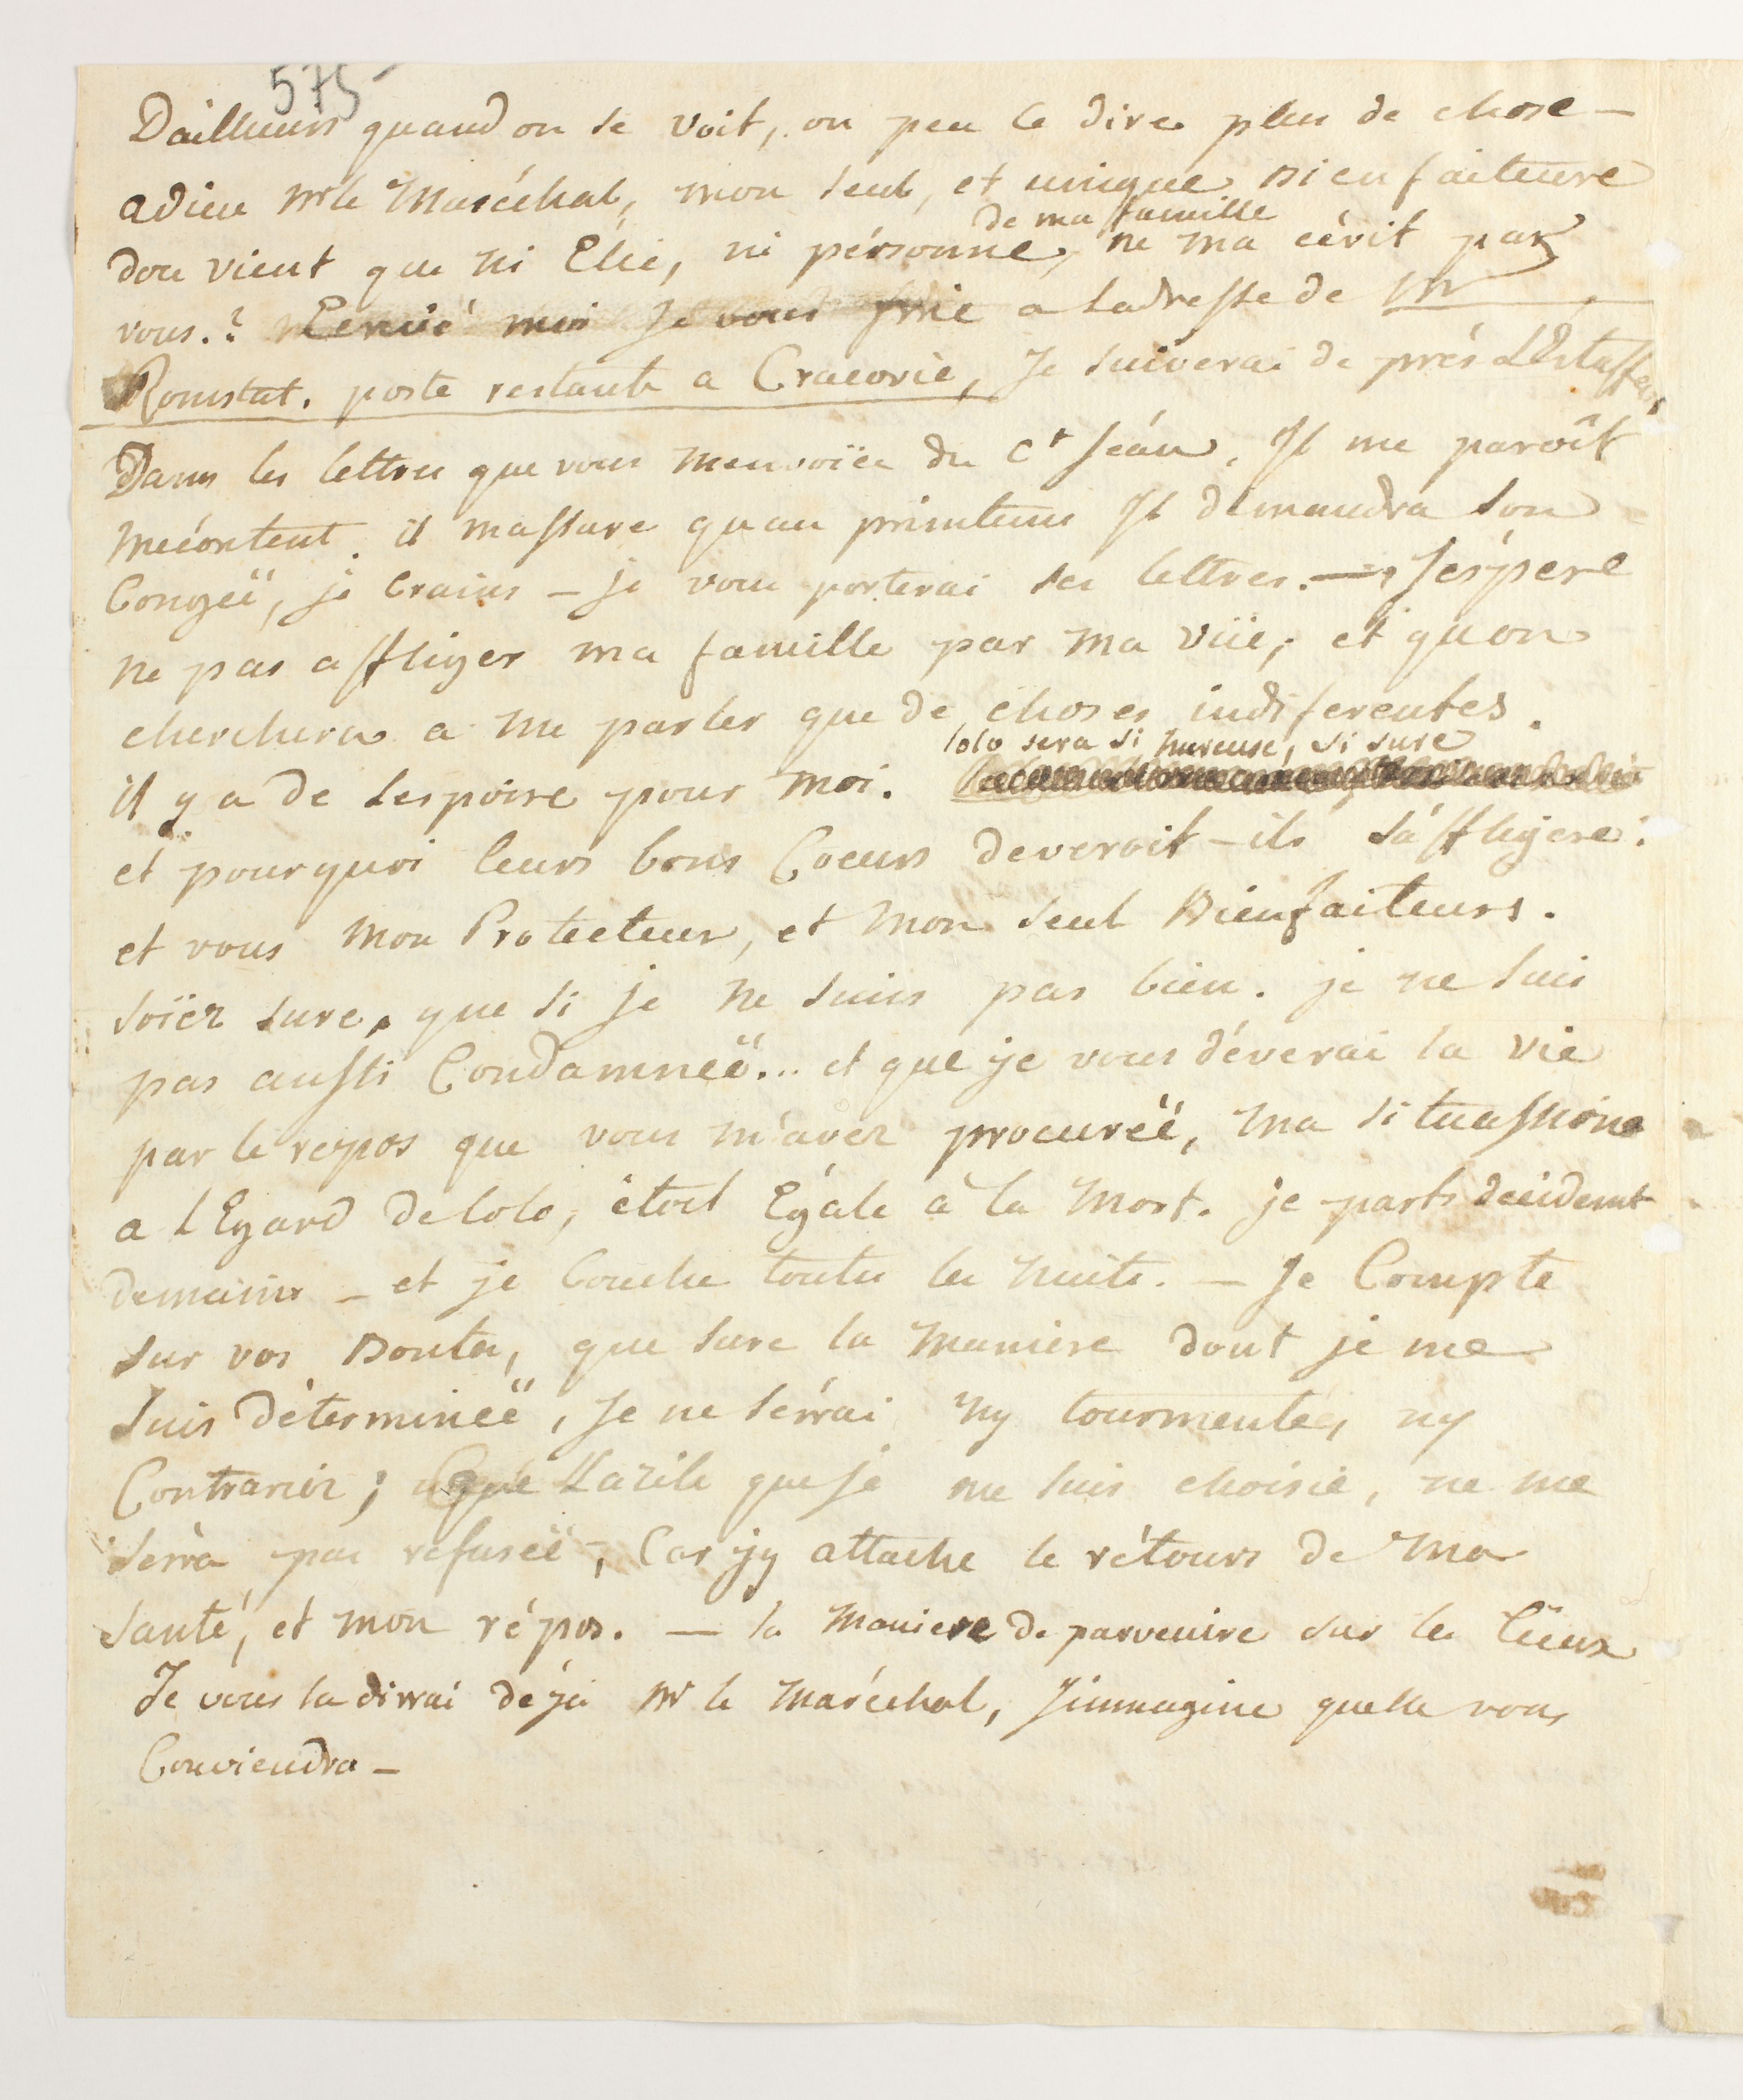 575
Dailleurs quand on se voit, on peu ce dire plus de chose —
adieu Mr le Maréchal, mon seul, et unique Bienfaiteure
de ma famille
dou vient que ni Elie, ni pérsonne, ne ma écrit par
vous.? Envoié moi Je vous prie a Ladresse de Mr
Romstat. poste restante a Cracovie, Je suiverai de prés LEstaffette,
Dans les lettres que vous menvoïée du Ct Jéan, Il me paroît
mécontent. il massure quau printems Il demandra son
Congéë, je Crains — je vous porterai ses lettres. — J'éspere
ne pas affliger ma famille par ma vüe, et quon
cherchera a me parler que de choses indiferentes.
lolo sera si hureuse, si sure
il y a de Lespoire pour moi.
et pourquoi leurs bons Coeurs deveroit-ils sáffligere:
et vous mon Protecteur, et mon seul Bienfaiteurs.
soïez sure, que si je ne suis pas bien. je ne suis
pas aussi Condamnéë... et que je vous déverai la vie
par le repos que vous m'avez procuréë, ma situassione
a lEgard de lolo, étoit Egale à la Mort. je parts décidemt
demains — et je Couche toutes les nuits. — Je Compte
sur vos Bontés, que sure la maniere dont je me
suis déterminéë, Je ne sérrai ny tourmentée, ny
Contrariéz; que Lazile que je me suis choisie, ne me
sérra pas refuséë, Car jy attache le rétours de Ma
santé, et mon répos. — la Maniere de parvenire sur les lieux
Je vous la dirrai déja Mr le Maréchal, Jimmagine quelle vous
Conviendra —